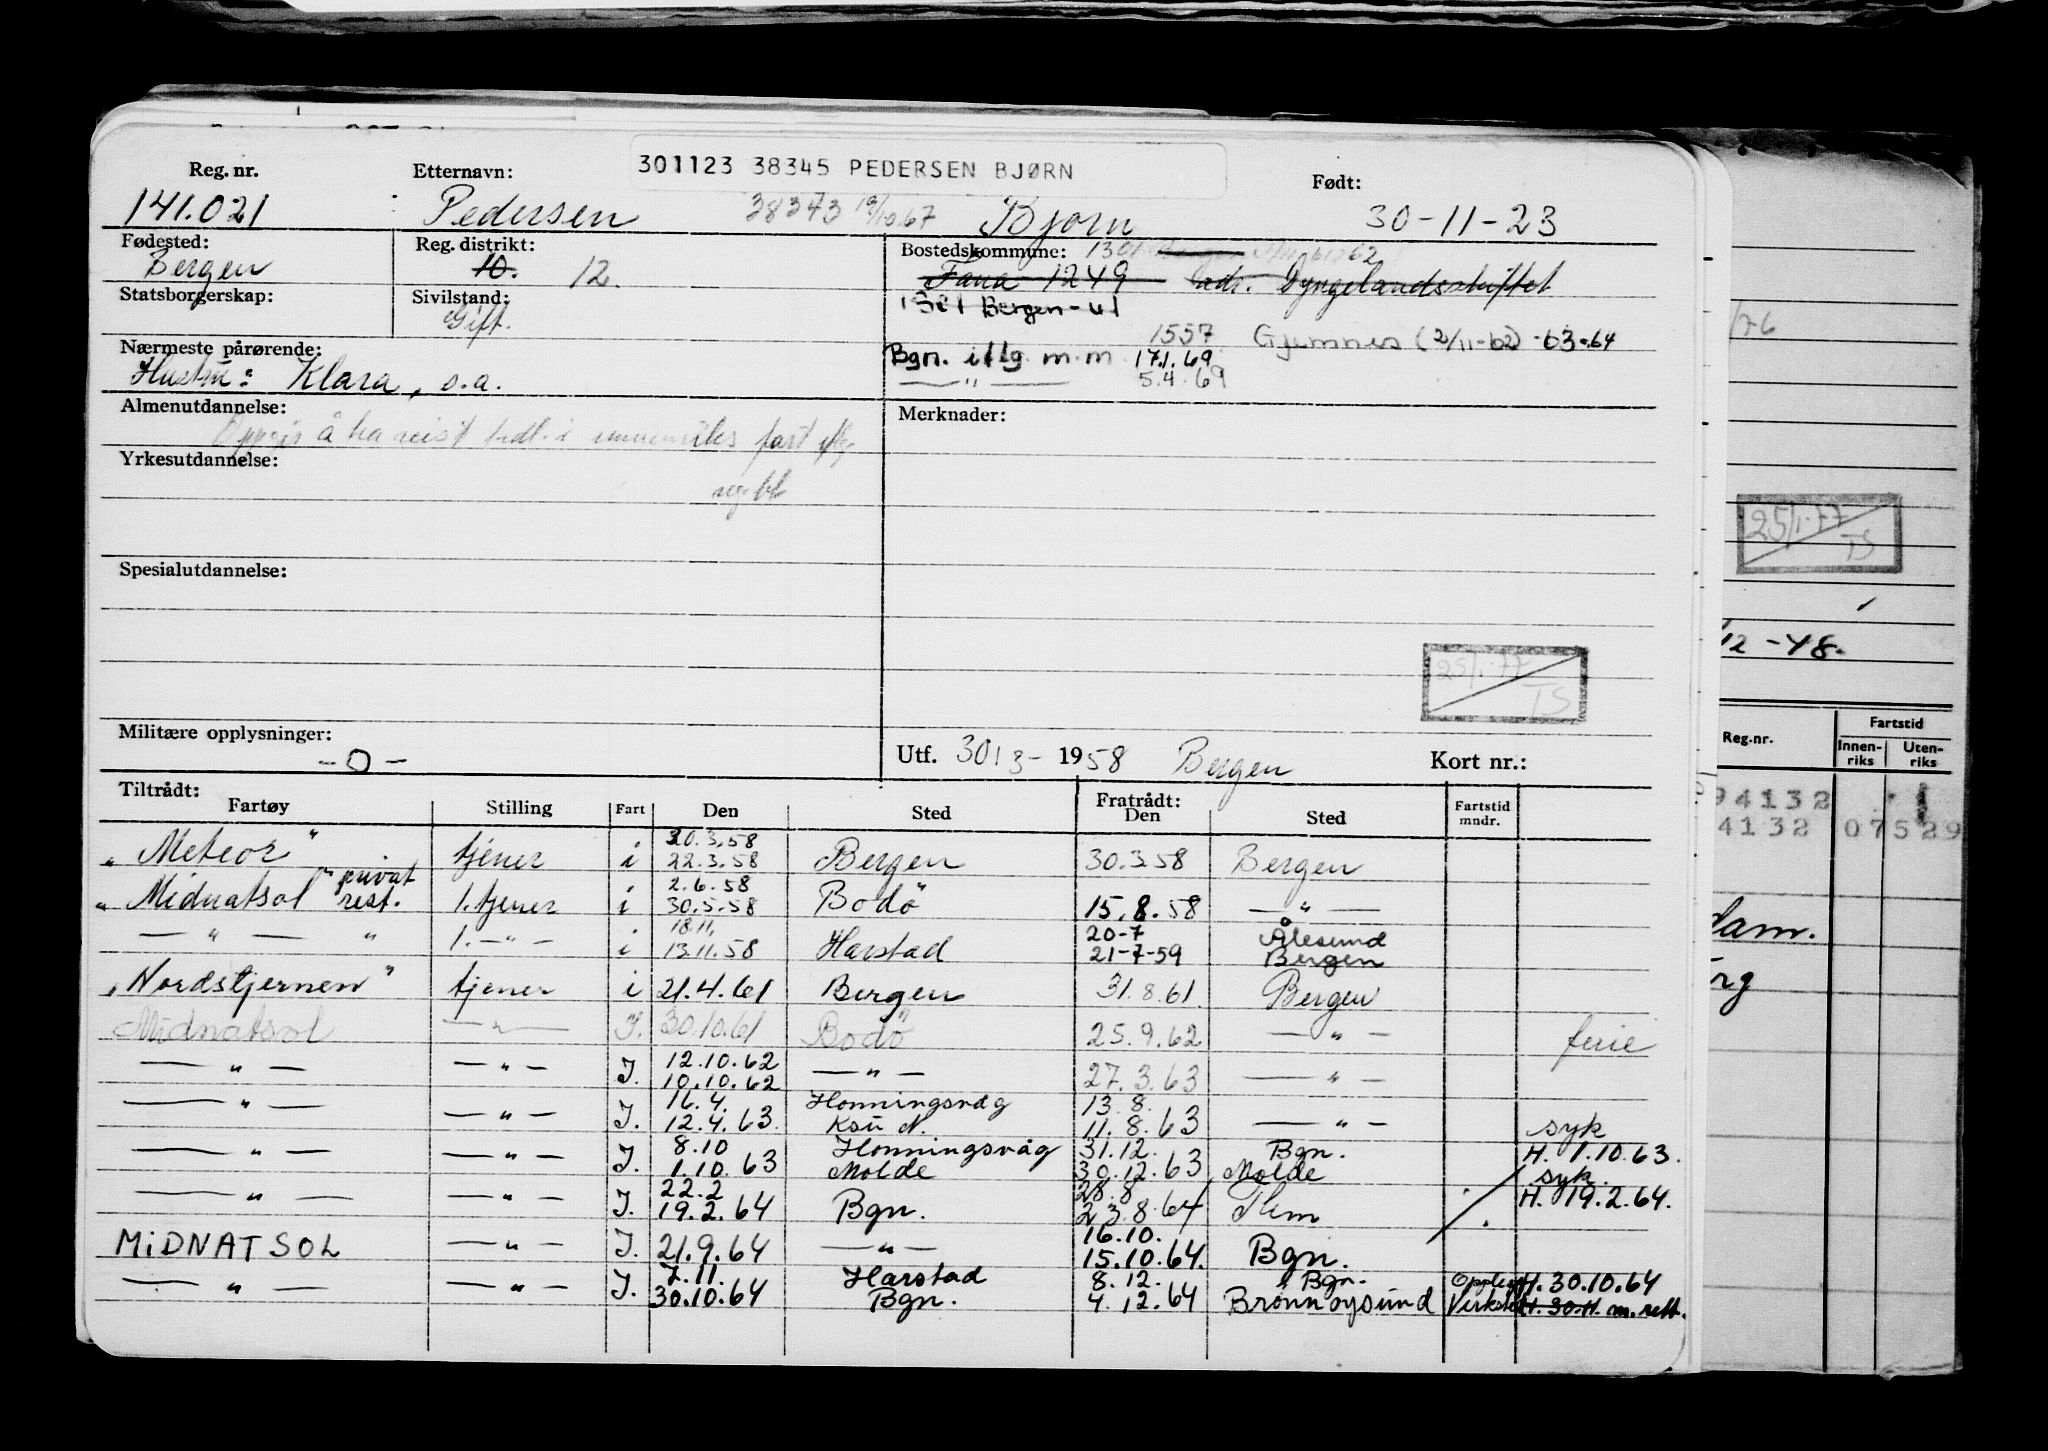 301123 38345 PEDERSEN BJØRN
Reg. nr. Etternavn: Født:
141.021 Pedersen 38373 19/10.67 Bjørn 30-11-23
Fødested: Reg. distrikt: Bostedskommune: 1301
Bergen 10. 12. Fana 1249 adr.
Statsborgerskap: Sivilstand: 1301 Bergen - 61
Gift.
1557 Gjemnes (2/11-62) -63-64
Nærmeste pårørende: Bgn. iflg m.m 17.1.69
Hustru: Klara, s.a. — " — 5.4.69
Almenutdannelse: Merknader:
Oppgir å ha reist tidl. i innenriks fart iflg.
Yrkesutdannelse:
Spesialutdannelse:
25/1-77
TS
Militære opplysninger:
-0-
Utf. 30/3- 1958 Bergen Kort nr.:
Tiltrådt: Fratrådt:
Fartøy Stilling Fart Den Sted Den Sted Fartstid mndr.
30.3.58
"Meteor" tjener i 22.3.58 Bergen 30.3.58 Bergen
privat 2.6.58
"Midnatsol" rest. 1. tjener i 30.5.58 Bodö 15.8.58 — " —
18.11. 20-7 Ålesund
— " — " 1. — " — i 13.11.58 Harstad 21-7-59 Bergen
"Nordstjernen" tjener i 21.4.61 Bergen 31.8.61. Bergen
Midnatsol — " — I. 30.10.61 Bodö 25.9.62 — " — ferie
12.10.62
— " — — " — I. 10.10.62 — " — 27.3.63 — " —
16.4. Honningsvåg 13.8.
— " — — " — I. 12.4.63. Ksu N. 11.8.63 — " — syk
8.10 Honningsvåg 31.12. Bgn. H. 1.10.63.
— " — — " — I. 1.10.63 Molde 30.12.63 Molde syk.
22.2 28.8 H. 19.2.64.
— " — — " — I. 19.2.64 Bgn. 23.8.64
16.10.
MIDNATSOL — " — I. 21.9.64 — " — 15.10.64. Bgn.
7.11. Harstad 8.12. Bgn. H. 30.10.64
— " — — " — I. 30.10.64 Bgn. 4.12.64 Brønnøysund H. 30.11. m. rett.
/76
25/1-77
TS
/12-48.
Reg.nr. Fartstid
Innen-riks Uten-riks
94132
4132 07529
dam.